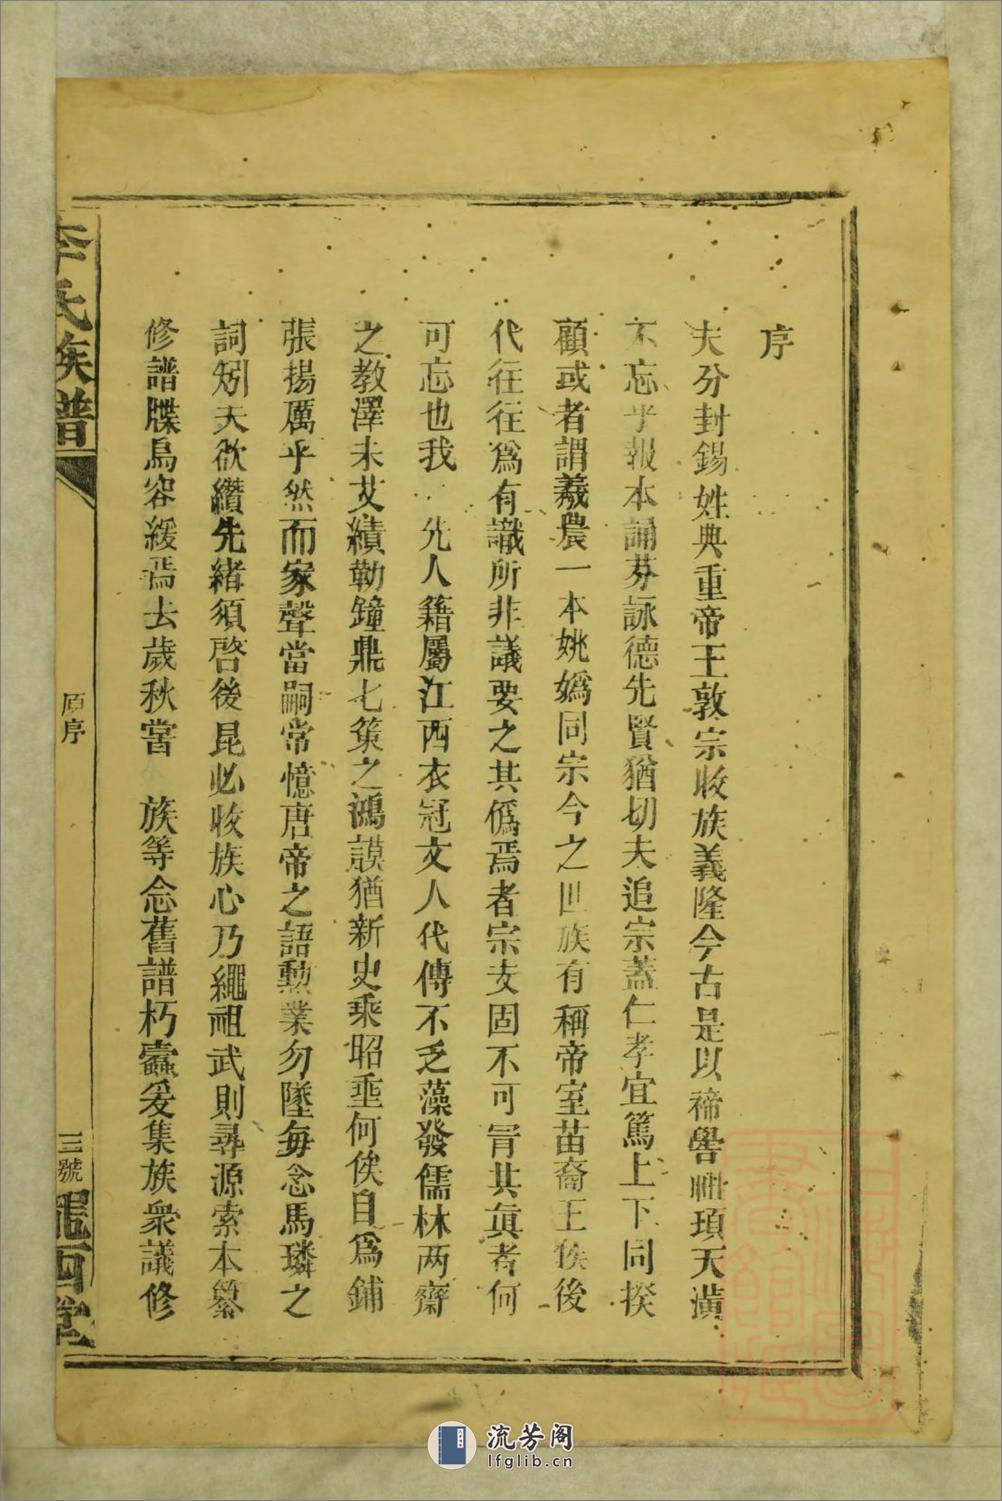 序
夫分封錫姓典重帝王敦宗收族義隆今古是以禘嚳郊頊天潢
不忘乎報本誦芬詠德先賢猶切夫追宗蓋仁孝宜篤上下同揆
顧或者謂羲農一本姚媯同宗今之世族有稱帝室苗裔王侯後
代往往爲有識所非議要之其僞焉者宗支固不可冐其眞者何
可忘也我 先人籍屬江西衣冠文人代傳不乏藻發儒林两齋
之教澤未艾績勒鐘鼎七策之鴻謨猶新史乘昭垂何俟自爲鋪
張揚厲乎然而家聲當嗣常憶唐帝之語勲業勿墜每念馬璘之
詞矧夫欲纘先緒須啓後昆必收族心乃繩祖武則尋源索本纂
修譜牒烏容緩焉去歲秋嘗 族等念舊譜朽蠹爰集族衆議修
李氏族譜
原序
三號
隴西堂
流芳阁
lfglib.cn